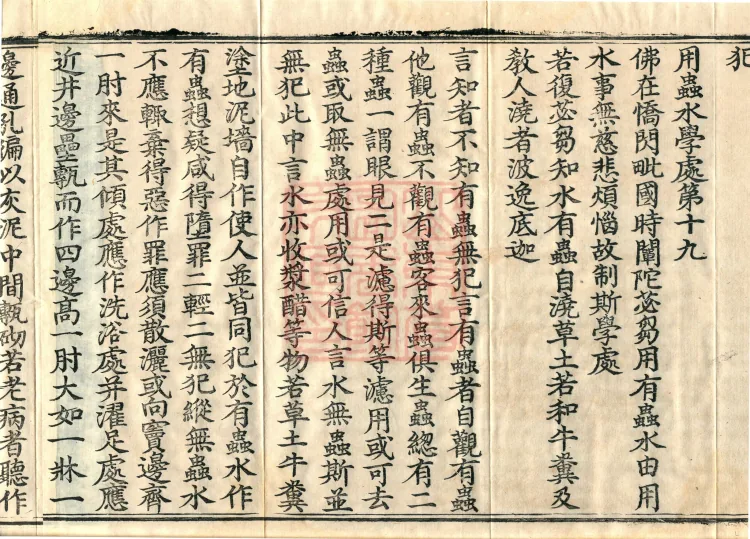 犯
用蟲水學處第十九
佛在憍閃毗國時闡陀苾芻用有蟲水由用
水事無慈悲煩惱故制斯學處
若復苾芻知水有蟲自澆草土若和牛糞及
教人澆者波逸底迦
言知者不知有蟲無犯言有蟲者自觀有蟲
他觀有蟲不觀有蟲客來蟲俱生蟲總有二
種蟲一謂眼見二是濾得斯等濾用或可去
蟲或取無蟲處用或可信人言水無蟲斯並
無犯此中言水亦收漿醋等物若草土牛糞
塗地泥墻自作使人並皆同犯於有蟲水作
有蟲想疑咸得墮罪二輕二無犯縱無蟲水
不應輒棄得惡作罪應須散灑或向竇邊齊
一肘來是其傾處應作洗浴處并濯足處應
近井邊壘甎而作四邊高一肘大如一牀一
邊通孔遍以灰泥中間甎砌若老病者聽作